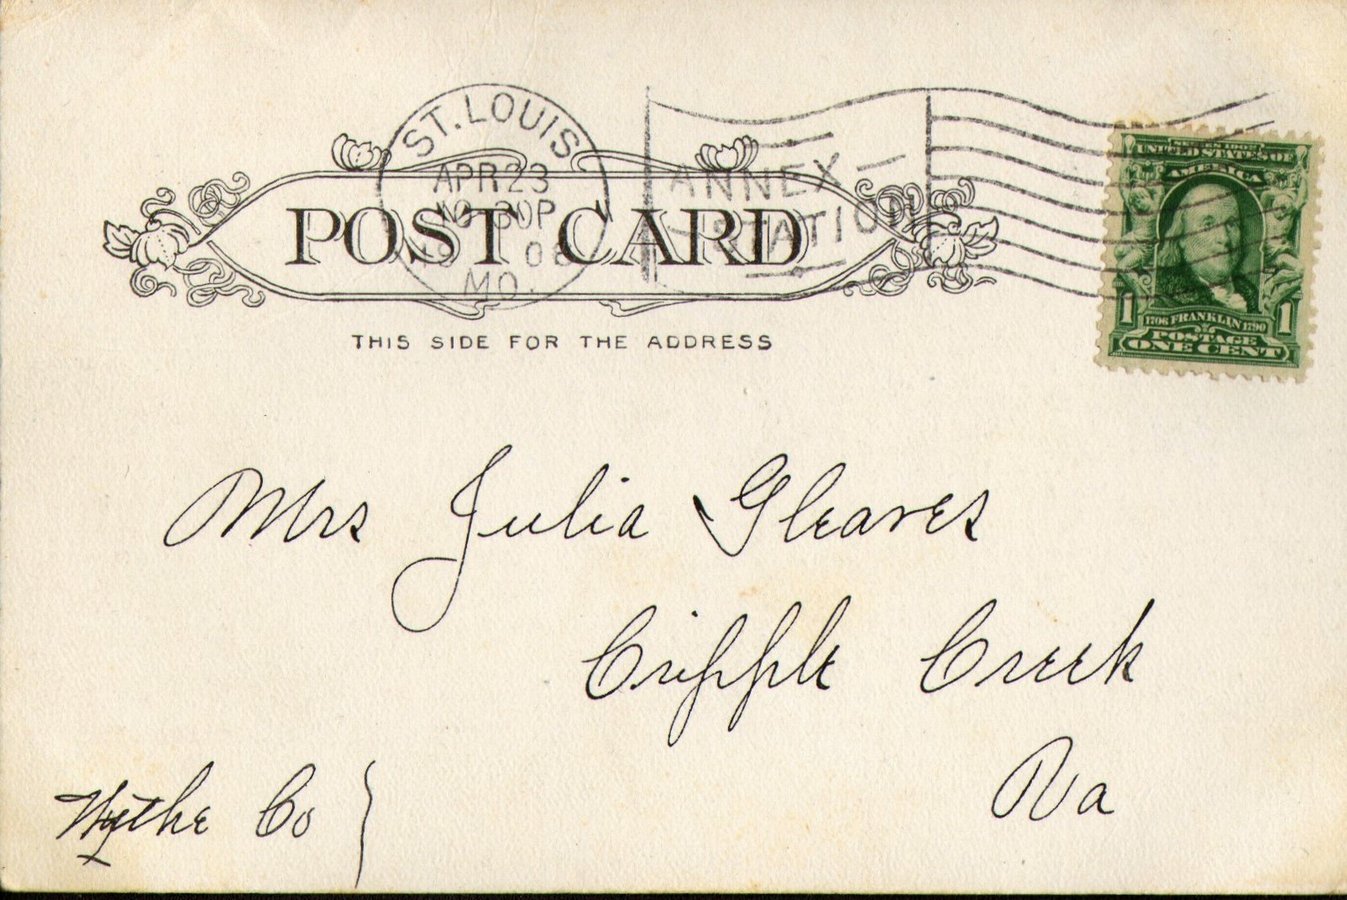 ST. LOUIS
APR 23
30P
08
MO.
ANNEX
STATION
POST CARD
THIS SIDE FOR THE ADDRESS
UNITED STATES OF
AMERICA
1 1706 FRANKLIN 1790 1
POSTAGE
ONE CENT
Mrs Julia Gleaves
Cripple Creek
Va
Wythe Co